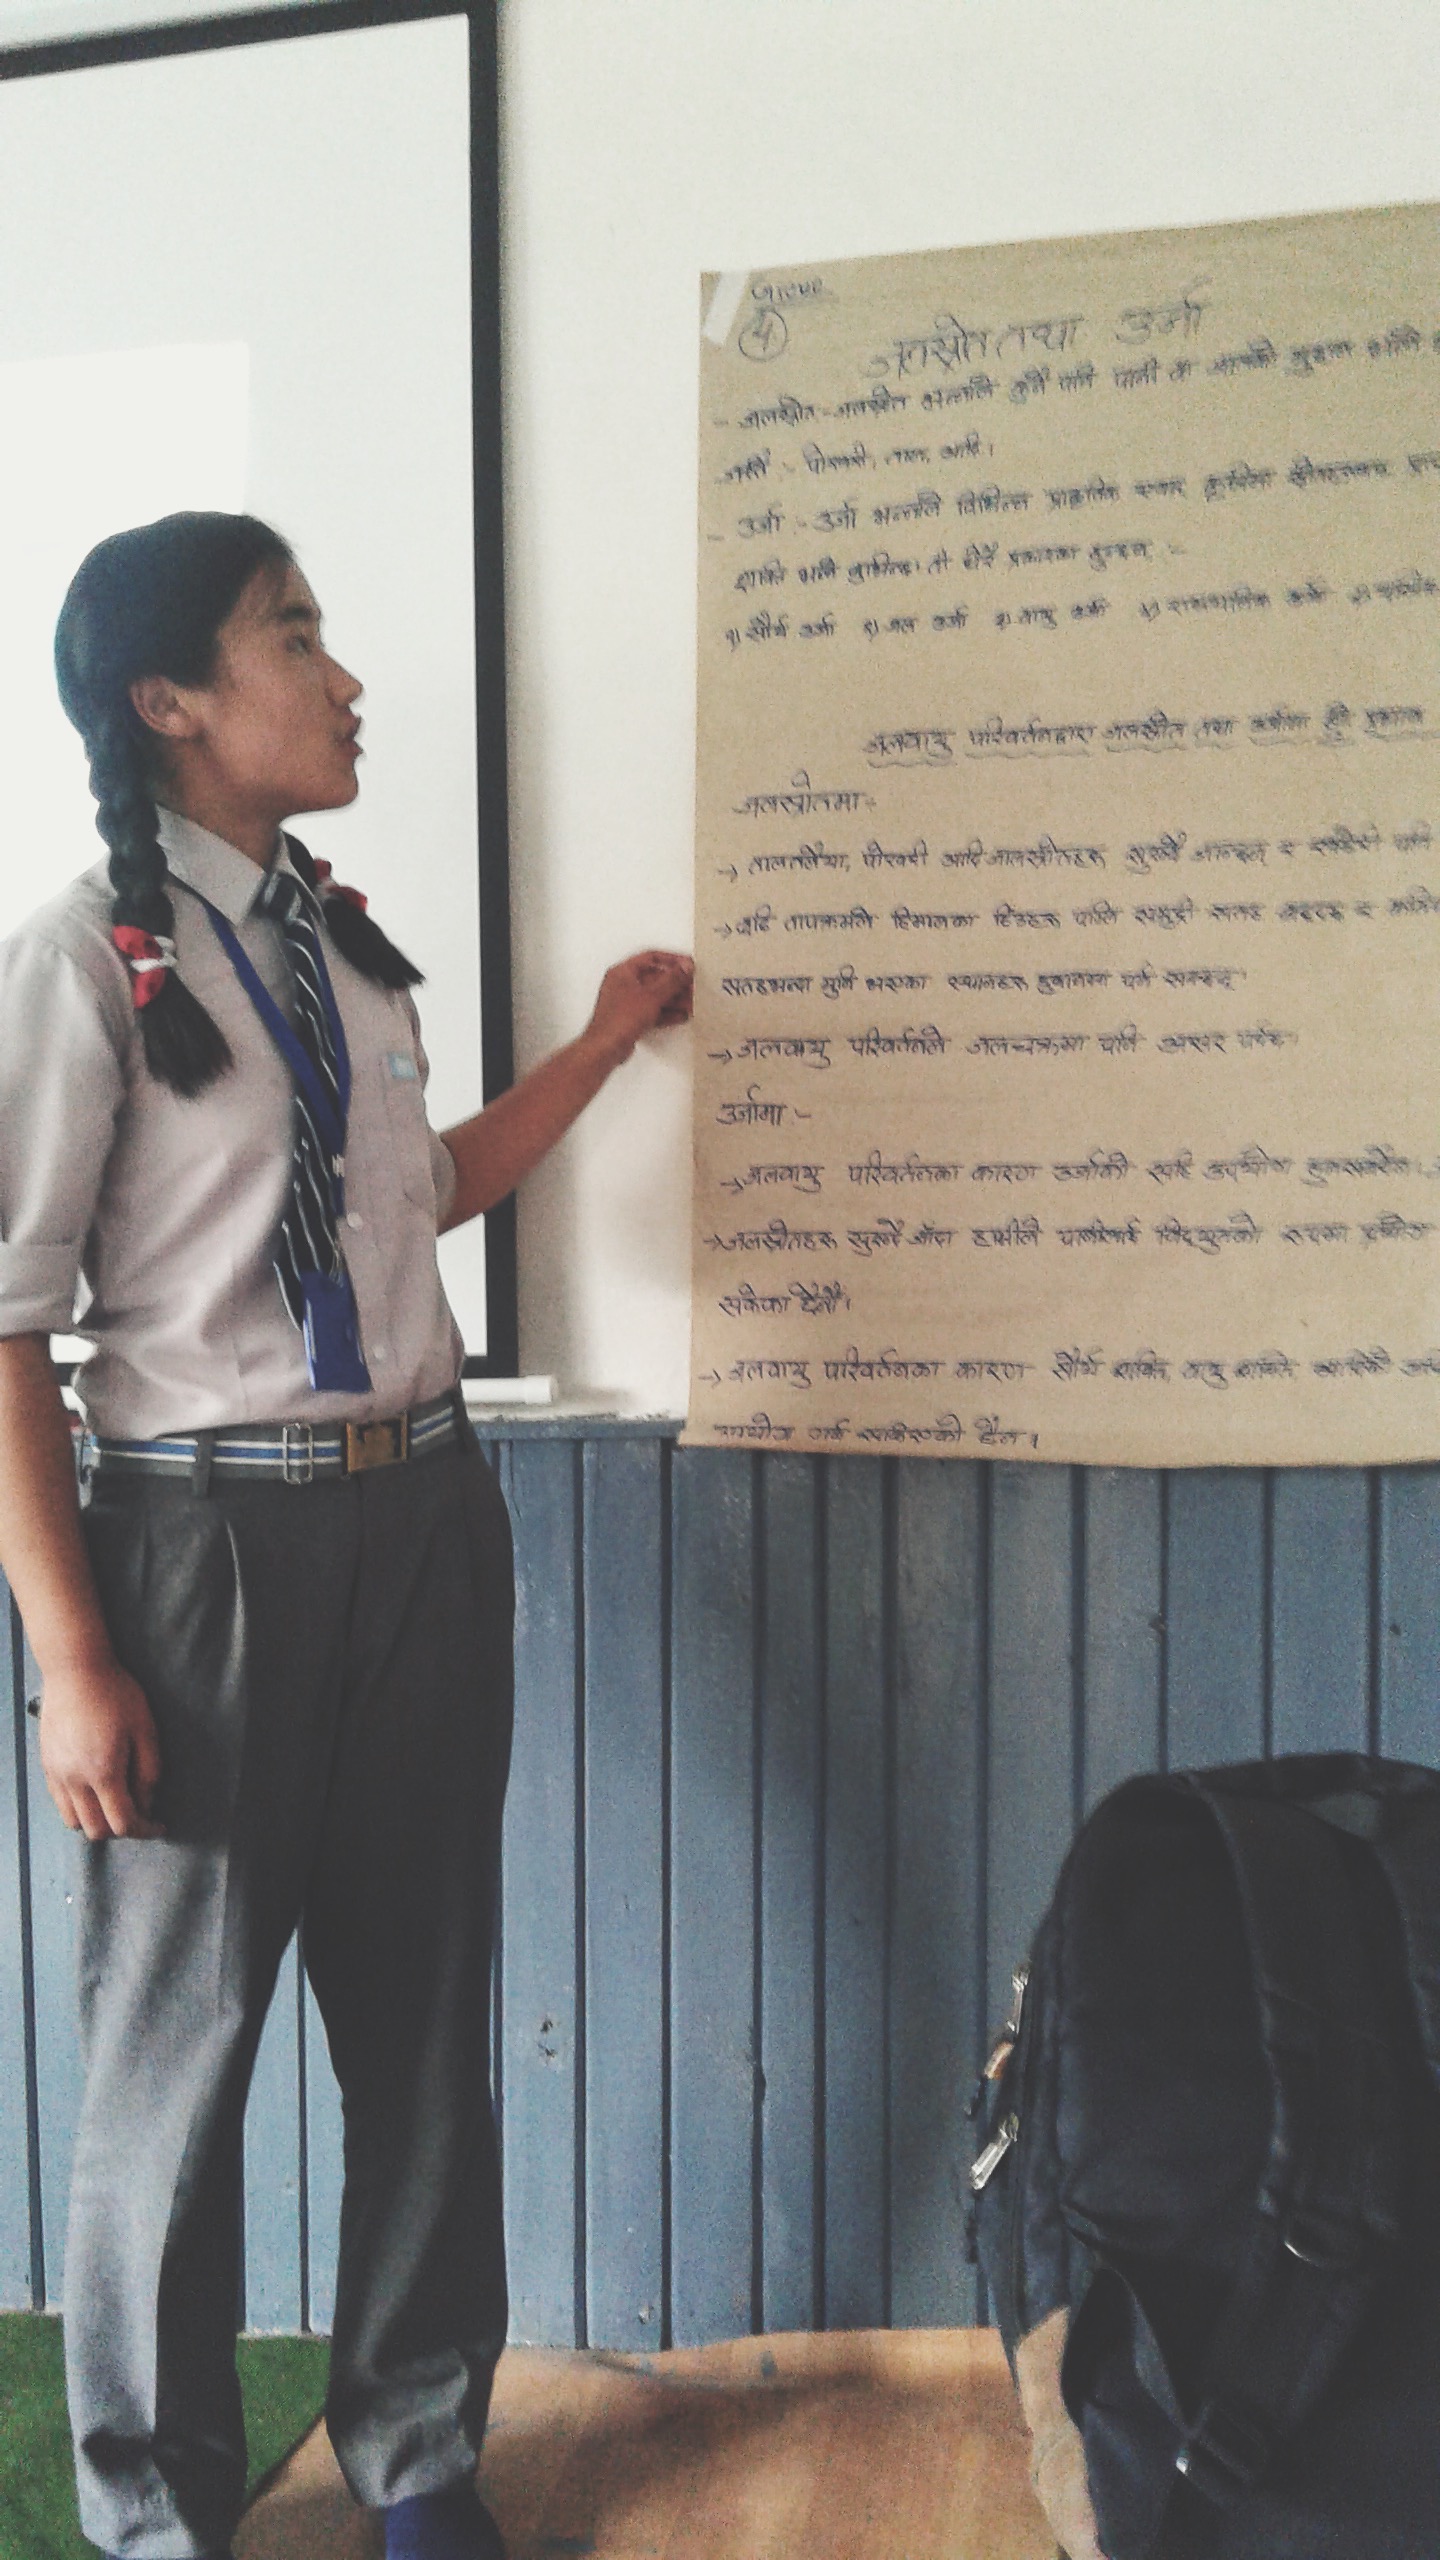 जलस्रोत तथा उर्जा
- जलस्रोत:- जलस्रोत भन्नाले कुनै पनि पानी वा
जस्तै :- पोखरी, ताल, आदि।
- उर्जा :- उर्जा भन्नाले विभिन्न प्राकृतिक
शक्ति भनि बुझिन्छ। यो धेरै प्रकारका हुन्छन् :-
१) सौर्य उर्जा २) जल उर्जा ३) वायु उर्जा ४) रासायनिक उर्जा ५)
जलवायु परिवर्तनद्वारा जलस्रोत तथा उर्जामा हुने प्रभाव
जलस्रोतमा :-
→ तालतलैया, पोखरी आदि जलस्रोतहरू सुक्दै जान्छन् र
→ वृद्धि तापक्रमले हिमालका हिउहरू पग्लि समुद्री सतह बढ्दछ र
सतहभन्दा मुनि भएका स्थानहरू डुबानमा पर्न सक्दछ।
→ जलवायु परिवर्तनले जलचक्रमा पनि असर पर्दछ
उर्जामा :-
→ जलवायु परिवर्तनका कारण उर्जाको सहि उपयोग हुनसक्दैन।
→ जलस्रोतहरू सुक्दै जाँदा हामीले पानीलाई विद्युतको रुपमा प्रयोग
सकेका छैनौं।
→ जलवायु परिवर्तनका कारण सौर्य शक्ति, वायु शक्ति
उपयोग गर्न सकिएको छैन।